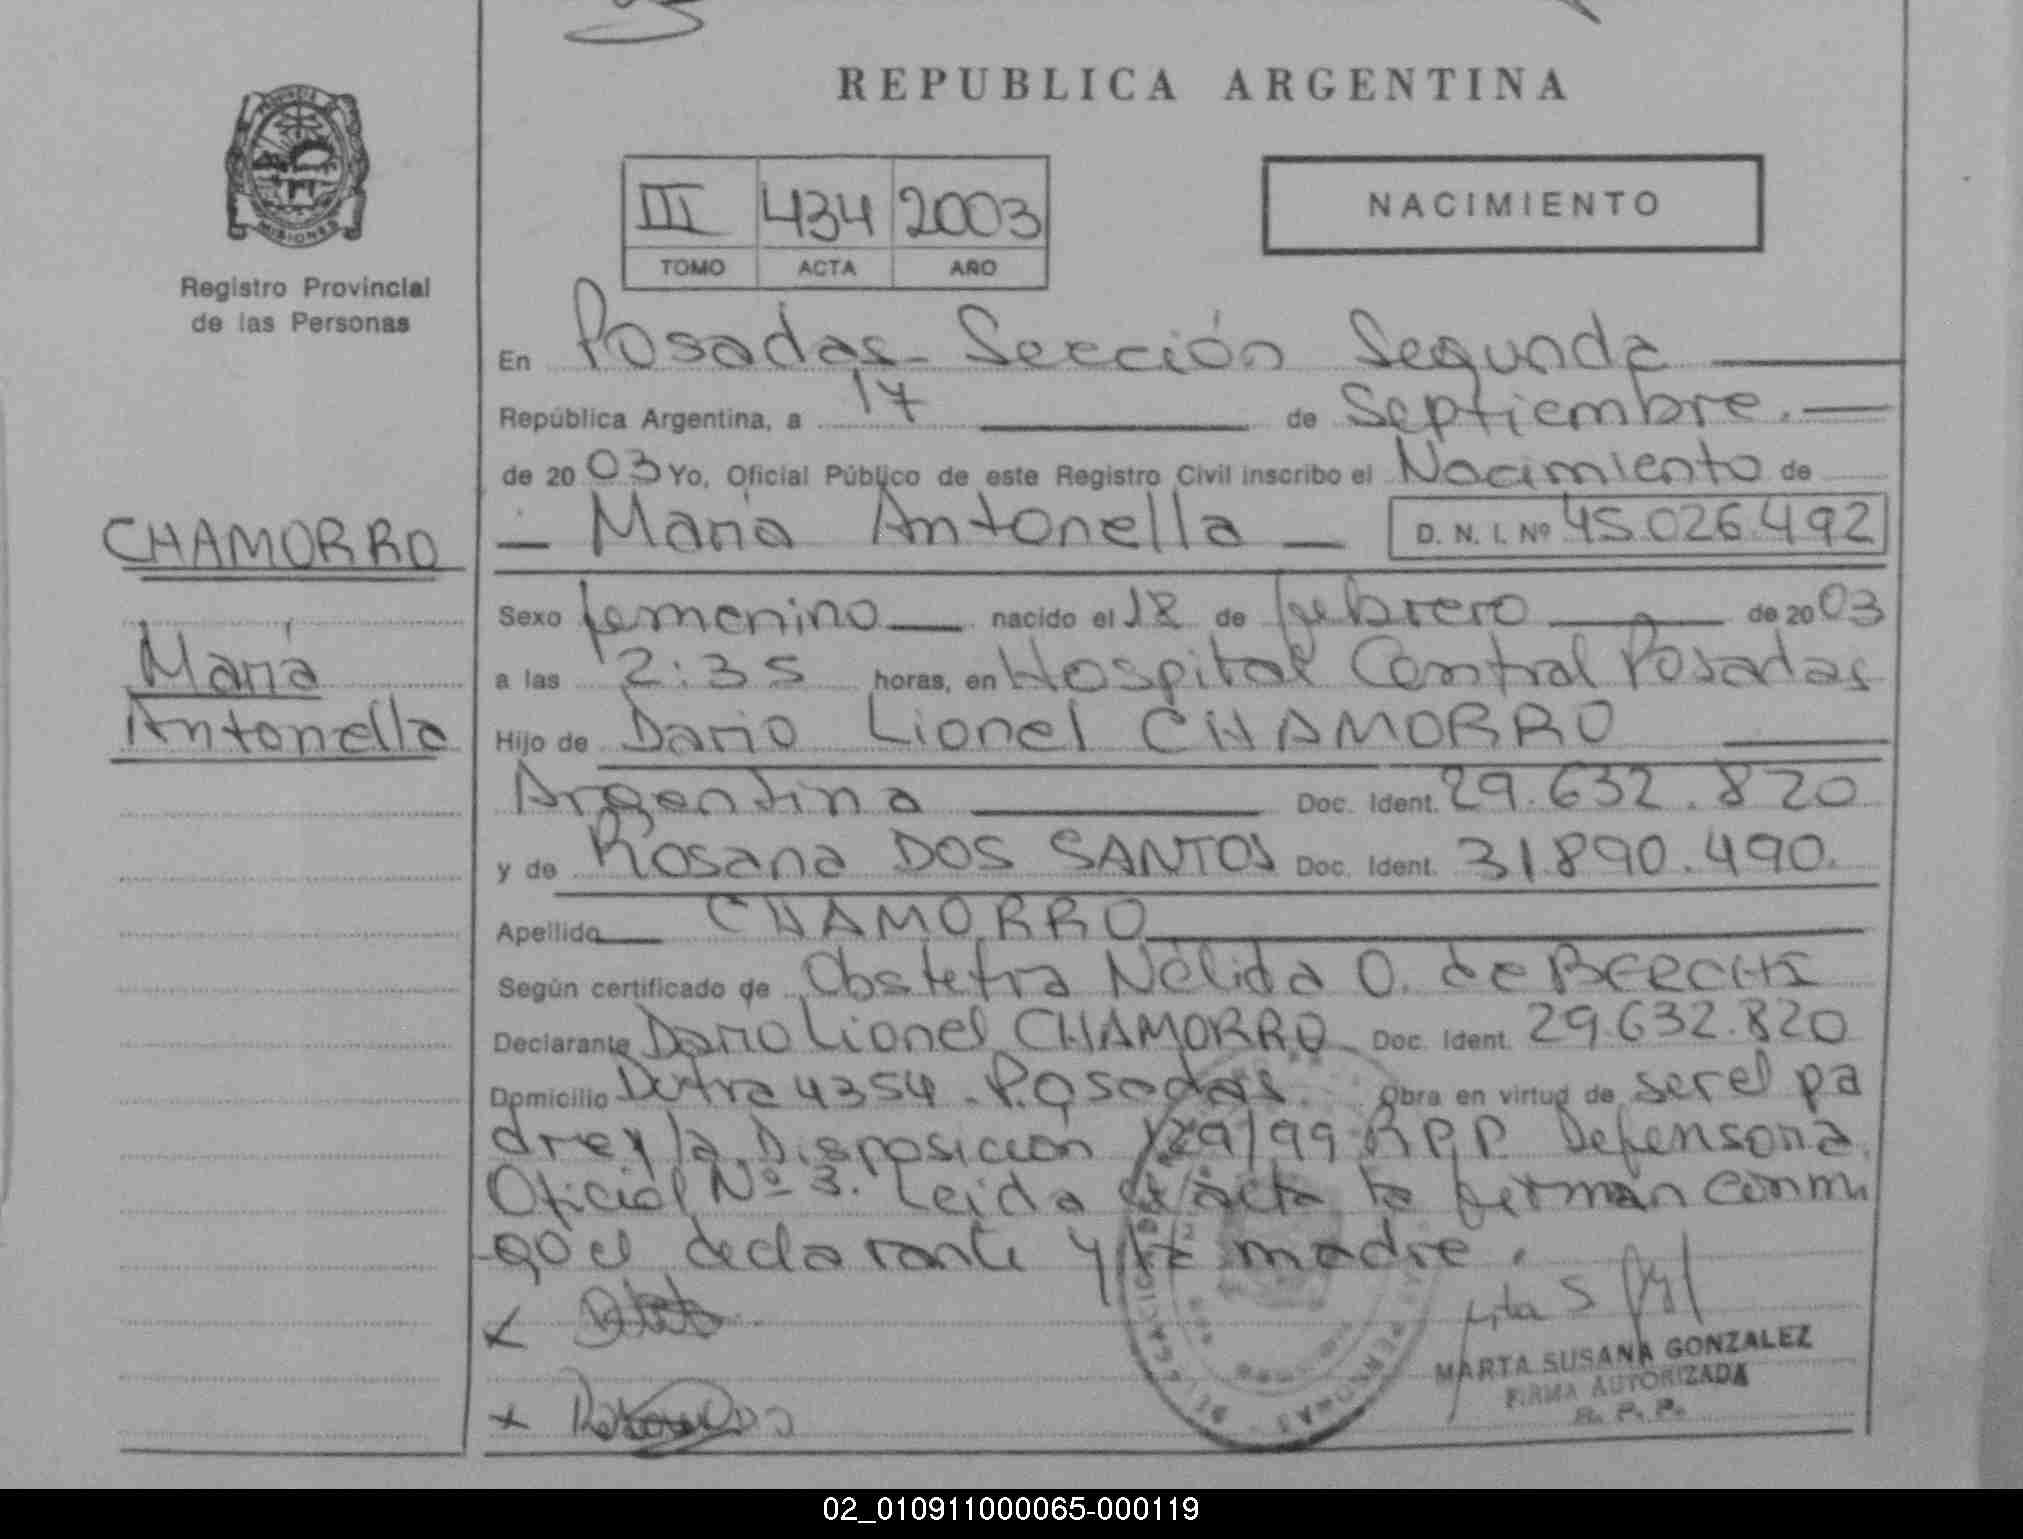 REPUBLICA ARGENTINA
PROVINCIA DE
MISIONES
Registro Provincial
de las Personas
III 434 2003
TOMO ACTA AÑO
NACIMIENTO
En Posadas - Sección Segunda
República Argentina, a 17 de Septiembre.
de 2003 Yo, Oficial Público de este Registro Civil inscribo el Nacimiento de
CHAMORRO
María
Antonella
María Antonella D. N. I. Nº 45.026.492
Sexo femenino nacido el 18 de febrero de 2003
a las 2:35 horas, en Hospital Central Posadas
Hijo de Dario Lionel CHAMORRO
Argentina Doc. Ident. 29.632.820
y de Rosana DOS SANTOS Doc. Ident. 31.890.490.
Apellido CHAMORRO
Según certificado de Obstetra Nélida O. de
Declarante Dario Lionel CHAMORRO Doc. Ident. 29.632.820
Domicilio Dutra 4354 - Posadas. Obra en virtud de ser el pa
dre y la Disposición 129/99 R.P.P. Defensoría
Oficial Nº 3. Leida el acta la firman conmi
go el declarante y la madre.
MARTA SUSANA GONZALEZ
FIRMA AUTORIZADA
R. P. P.
02_010911000065-000119